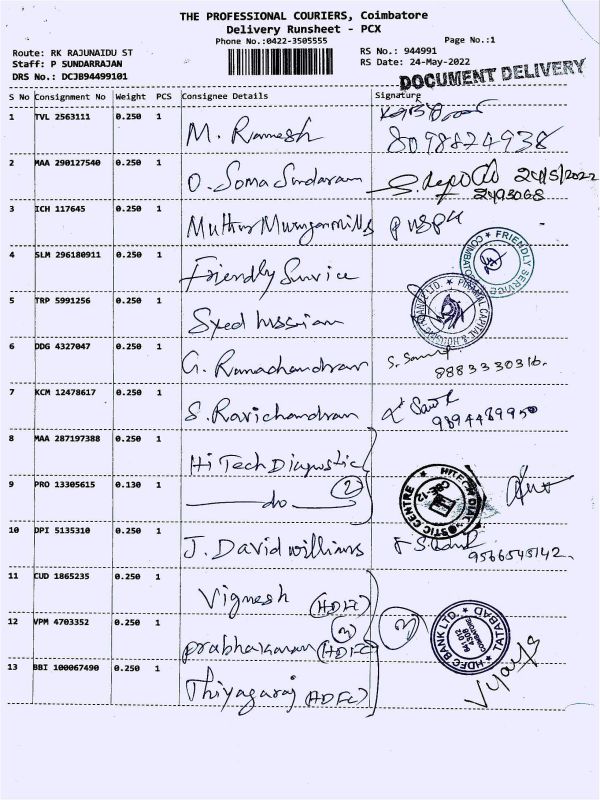 THE PROFESSIONAL COURIERS, Coimbatore
Delivery Runsheet - PCX
Phone No.:0422-3505555
Page No.:1
Route: RK RAJUNAIDU ST
RS No.: 944991
Staff: P SUNDARRAJAN
RS Date: 24-May-2022
DRS No.: DCJB94499101
DOCUMENT DELIVERY
S No Consignment No Weight PCS Consignee Details Signature
1 TVL 2563111 0.250 1 M. Ramesh
8098824938
2 MAA 290127540 0.250 1 O. Soma Sundaram 24/5/2022
3 ICH 117645 0.250 1 Muthu Murugan mills
4 SLM 296180911 0.250 1 Friendly Service
FRIENDLY SERVICE
5 TRP 5991256 0.250 1 Syed hussian
6 DDG 4327047 0.250 1 G. Ramachandran
8883330316.
7 KCM 12478617 0.250 1 S. Ravichandran
9894489950
8 MAA 287197388 0.250 1 Hi Tech Diagnostic
9 PRO 13305615 0.130 1 do 2
10 DPI 5135310 0.250 1 J. David williams
9566545142.
11 CUD 1865235 0.250 1 Vignesh (HDFC)
12 VPM 4703352 0.250 1 prabhakaran (HDFC) 3
13 BBI 100067490 0.250 1 Thiyagaraj (HDFC)
HDFC BANK LTD. TATABAD